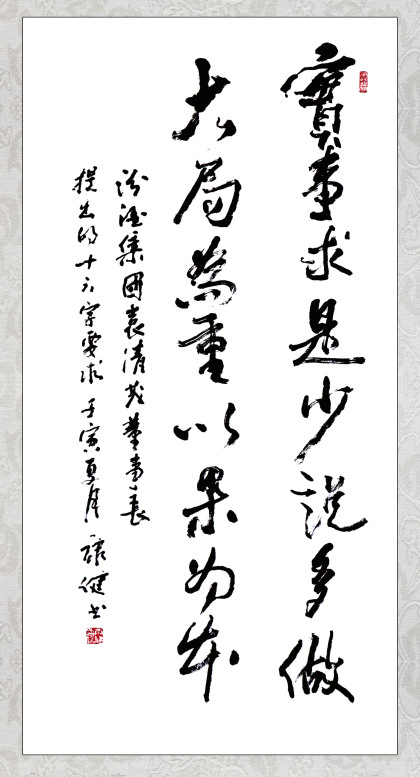 實事求是少说多做
大局為重以果为本
汾酒集團袁清茂董事長
提出的十六字要求 壬寅夏月 康健书